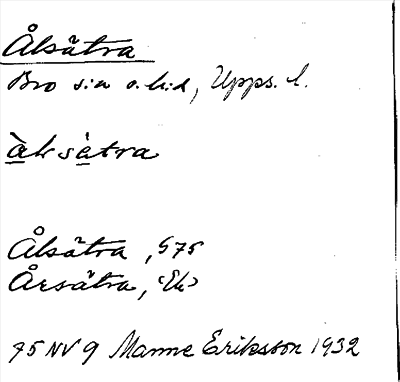 Ålsätra
Bro s:n o. h:d, Upps. l.
àksàtra
Ålsätra, G75
Årsätra, (Ek)
75 NV 9 Manne Eriksson 1932